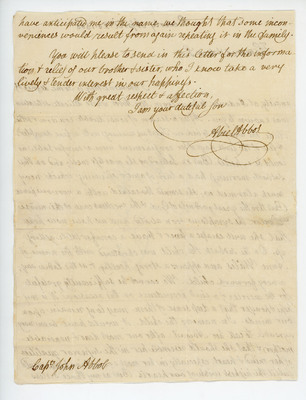 have anticipated me in the name, we thought that some incon-
veniences would result from again repeating it in the family.
You will please to send in this letter for the informa
tion & relief of our brother & sister, who I know take a very
lively & tender interest in our happiness.
With great respect & affection,
I am your dutiful son
Abiel Abbot
Capt. John Abbot